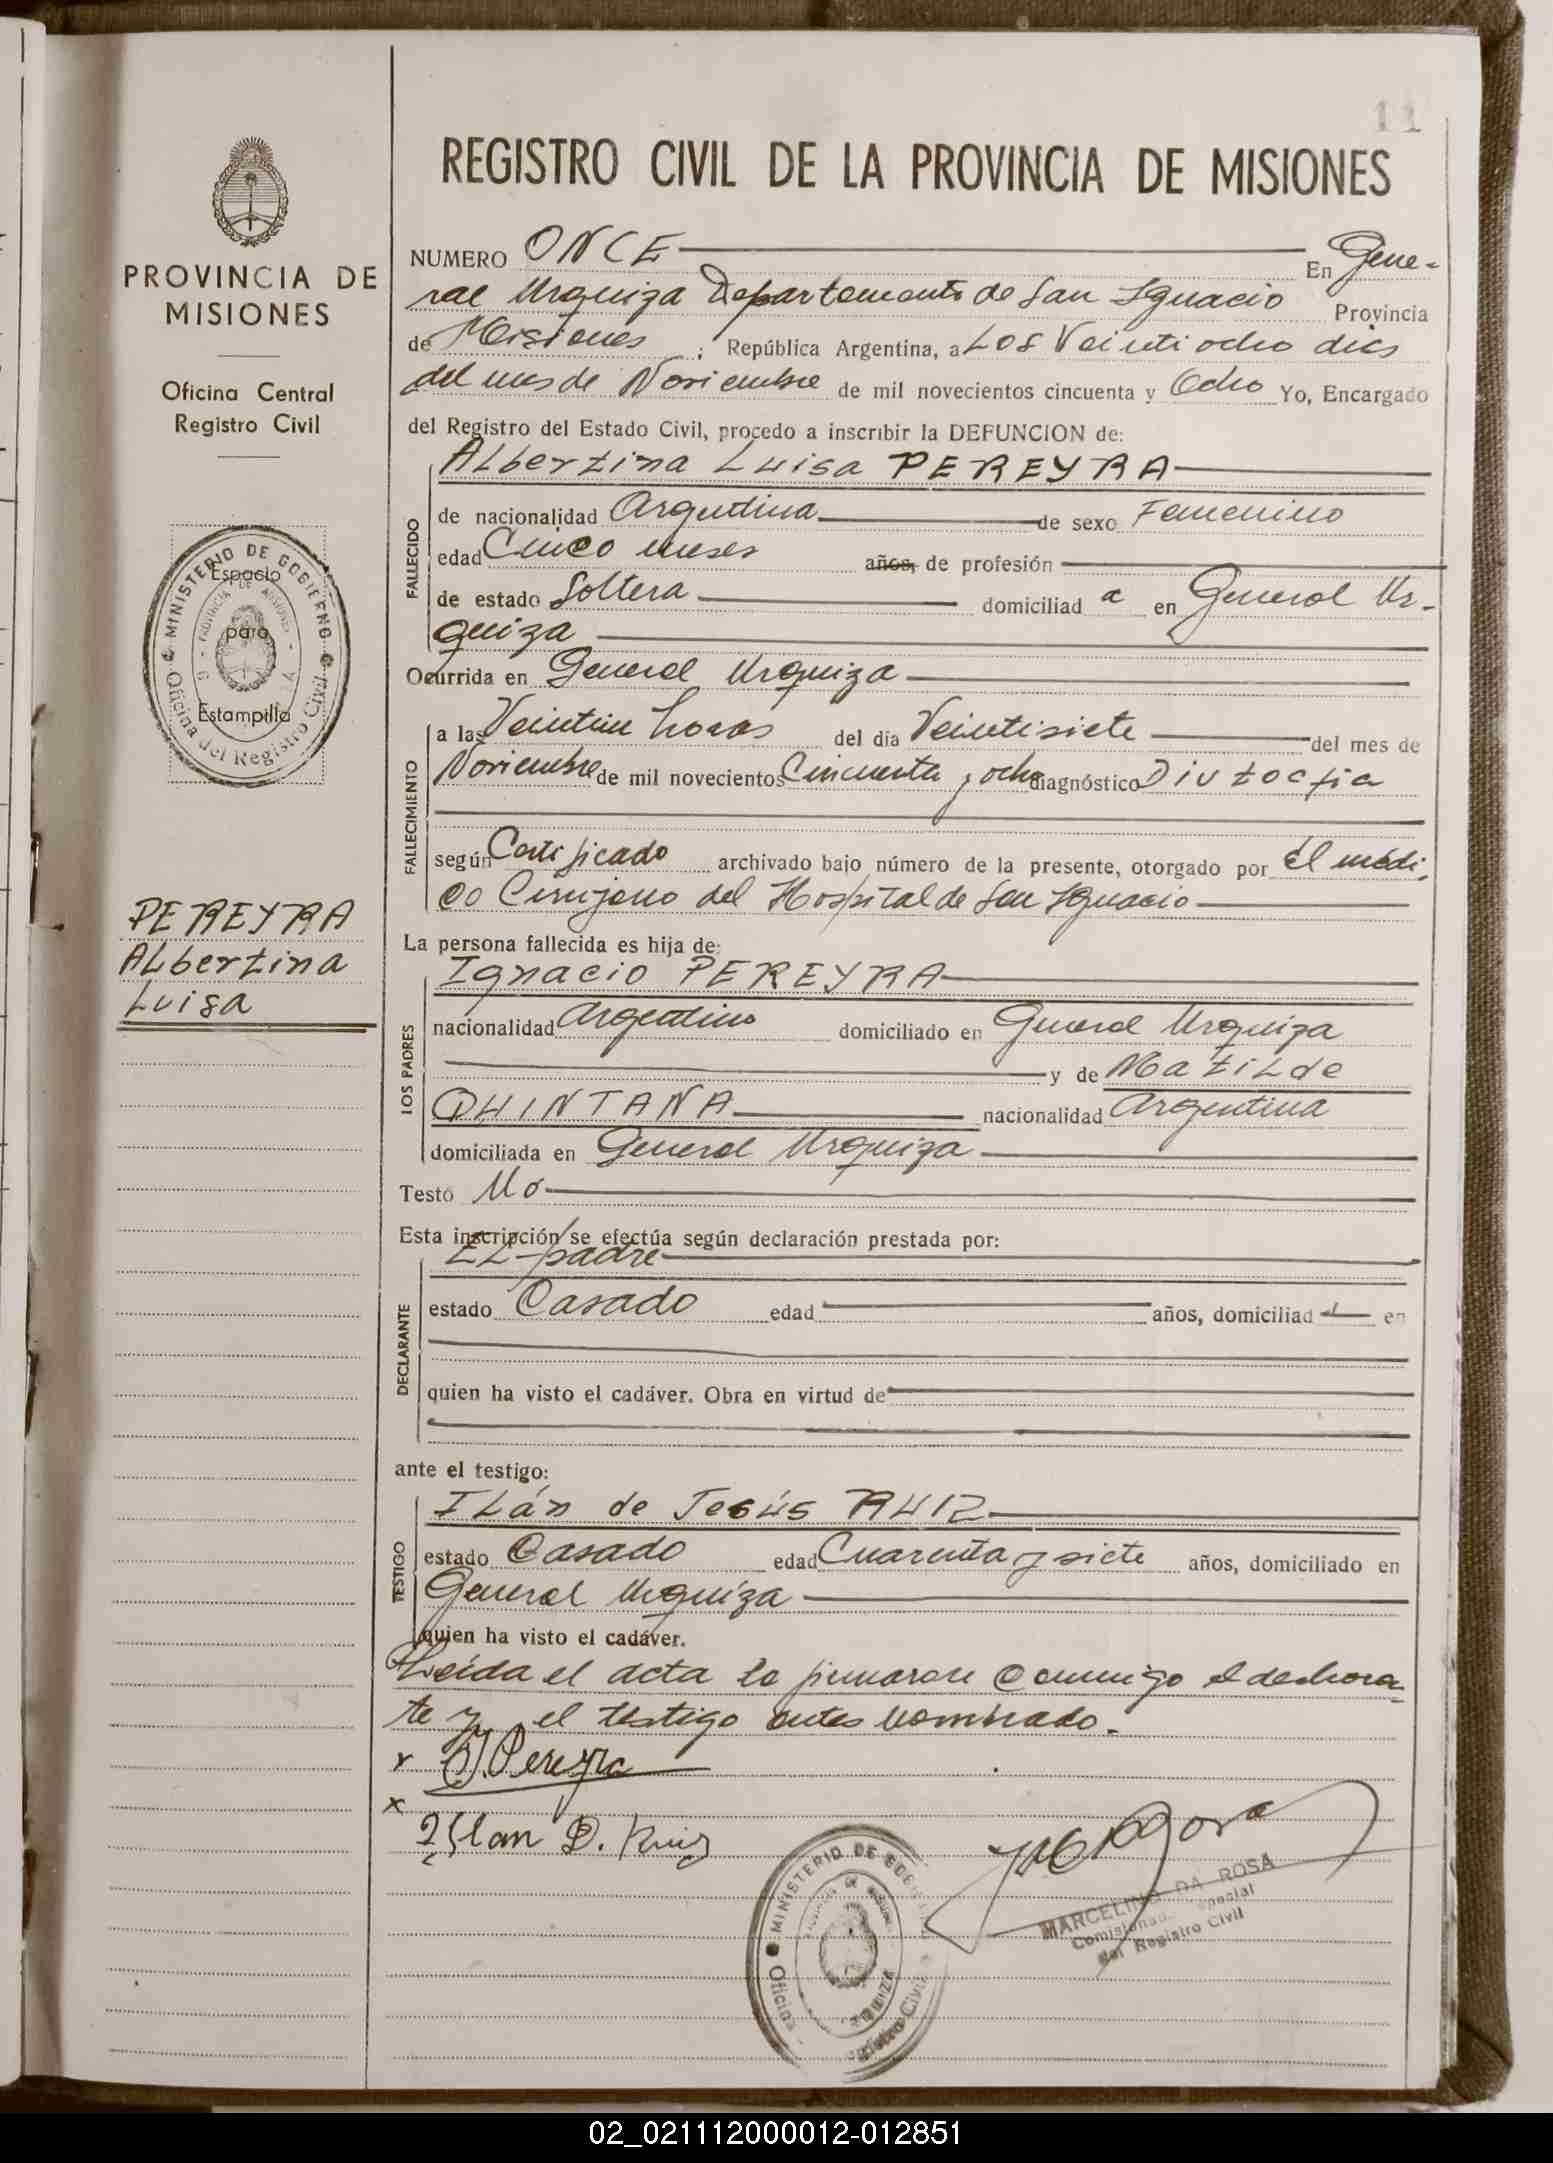 11
REGISTRO CIVIL DE LA PROVINCIA DE MISIONES
PROVINCIA DE
MISIONES
Oficina Central
Registro Civil
MINISTERIO DE GOBIERNO
Oficina del Registro Civil
Espacio
para
Estampilla
PEREYRA
Albertina
Luisa
NUMERO ONCE En Gene-
ral Urquiza Departamento de San Ignacio Provincia
de Misiones ; República Argentina, a Los Veintiocho dias
del mes de Noviembre de mil novecientos cincuenta y Ocho Yo, Encargado
del Registro del Estado Civil, procedo a inscribir la DEFUNCION de:
Albertina Luisa PEREYRA
FALLECIDO
de nacionalidad Argentina de sexo Femenino
edad Cinco meses años, de profesión
de estado Soltera domiciliad a en General Ur-
quiza
Ocurrida en General Urquiza
FALLECIMIENTO
a las Veintiun horas del día Veintisiete del mes de
Noviembre de mil novecientos Cincuenta y ocho diagnóstico
según Certificado archivado bajo número de la presente, otorgado por El médi-
co Cirujano del Hospital de San Ignacio
La persona fallecida es hija de:
LOS PADRES
Ignacio PEREYRA
nacionalidad Argentino domiciliado en General Urquiza
y de Matilde
QUINTANA nacionalidad Argentina
domiciliada en General Urquiza
Testó No
Esta inscripción se efectúa según declaración prestada por:
DECLARANTE
El padre
estado Casado edad años, domiciliad en
quien ha visto el cadáver. Obra en virtud de
ante el testigo:
TESTIGO
Ilán de Jesús RUIZ
estado Casado edad Cuarenta y siete años, domiciliado en
General Urquiza
quien ha visto el cadáver.
Leída el acta la firmaron conmigo el declaran-
te y el testigo antes nombrado.
x Pereyra
x
Ilan D. Ruiz
MINISTERIO DE
Oficina
MARCELINO DA ROSA
Comisionado Especial
del Registro Civil
02_021112000012-012851